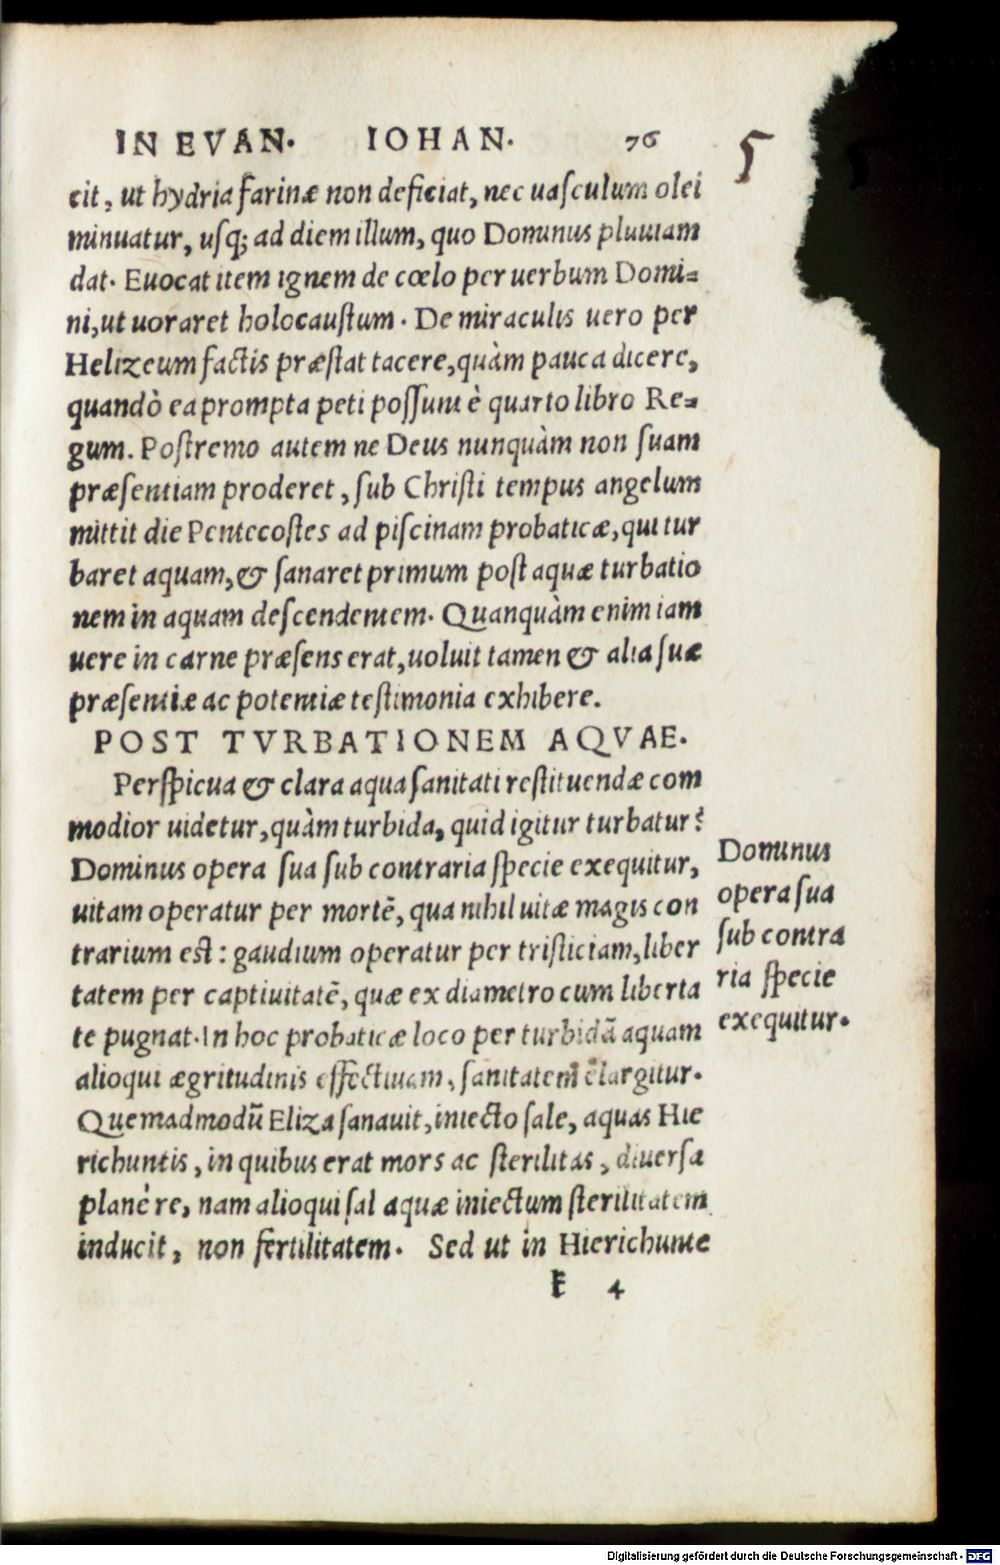 IN EVAN. IOHAN. 76 5
cit, ut hydria farinæ non deficiat, nec uasculum olei
minuatur, usq; ad diem illum, quo Dominus pluuiam
dat. Euocat item ignem de cœlo per uerbum Domi=
ni, ut uoraret holocaustum. De miraculis uero per
Helizeum factis præstat tacere, quàm pauca dicere,
quandò ea prompta peti possunt è quarto libro Re=
gum. Postremo autem ne Deus nunquàm non suam
præsentiam proderet, sub Christi tempus angelum
mittit die Pentecostes ad piscinam probaticæ, qui tur
baret aquam, & sanaret primum post aquæ turbatio
nem in aquam descendentem. Quanquàm enim iam
uere in carne præsens erat, uoluit tamen & alia suæ
præsentiæ ac potentiæ testimonia exhibere.
POST TVRBATIONEM AQVAE.
Perspicua & clara aqua sanitati restituendæ com
modior uidetur, quàm turbida, quid igitur turbatur?
Dominus opera sua sub contraria specie exequitur,
uitam operatur per mortē, qua nihil uitæ magis con
trarium est: gaudium operatur per tristiciam, liber
tatem per captiuitatē, quæ ex diametro cum liberta
te pugnat. In hoc probaticæ loco per turbidā aquam
alioqui ægritudinis effectiuam, sanitatem elargitur.
Quemadmodū Eliza sanauit, iniecto sale, aquas Hie
richuntis, in quibus erat mors ac sterilitas, diuersa
planè re, nam alioqui sal aquæ iniectum sterilitatem
inducit, non fertilitatem. Sed ut in Hierichunte
k 4
Dominus
opera sua
sub contra
ria specie
exequitur.
Digitalisierung gefördert durch die Deutsche Forschungsgemeinschaft - DFG